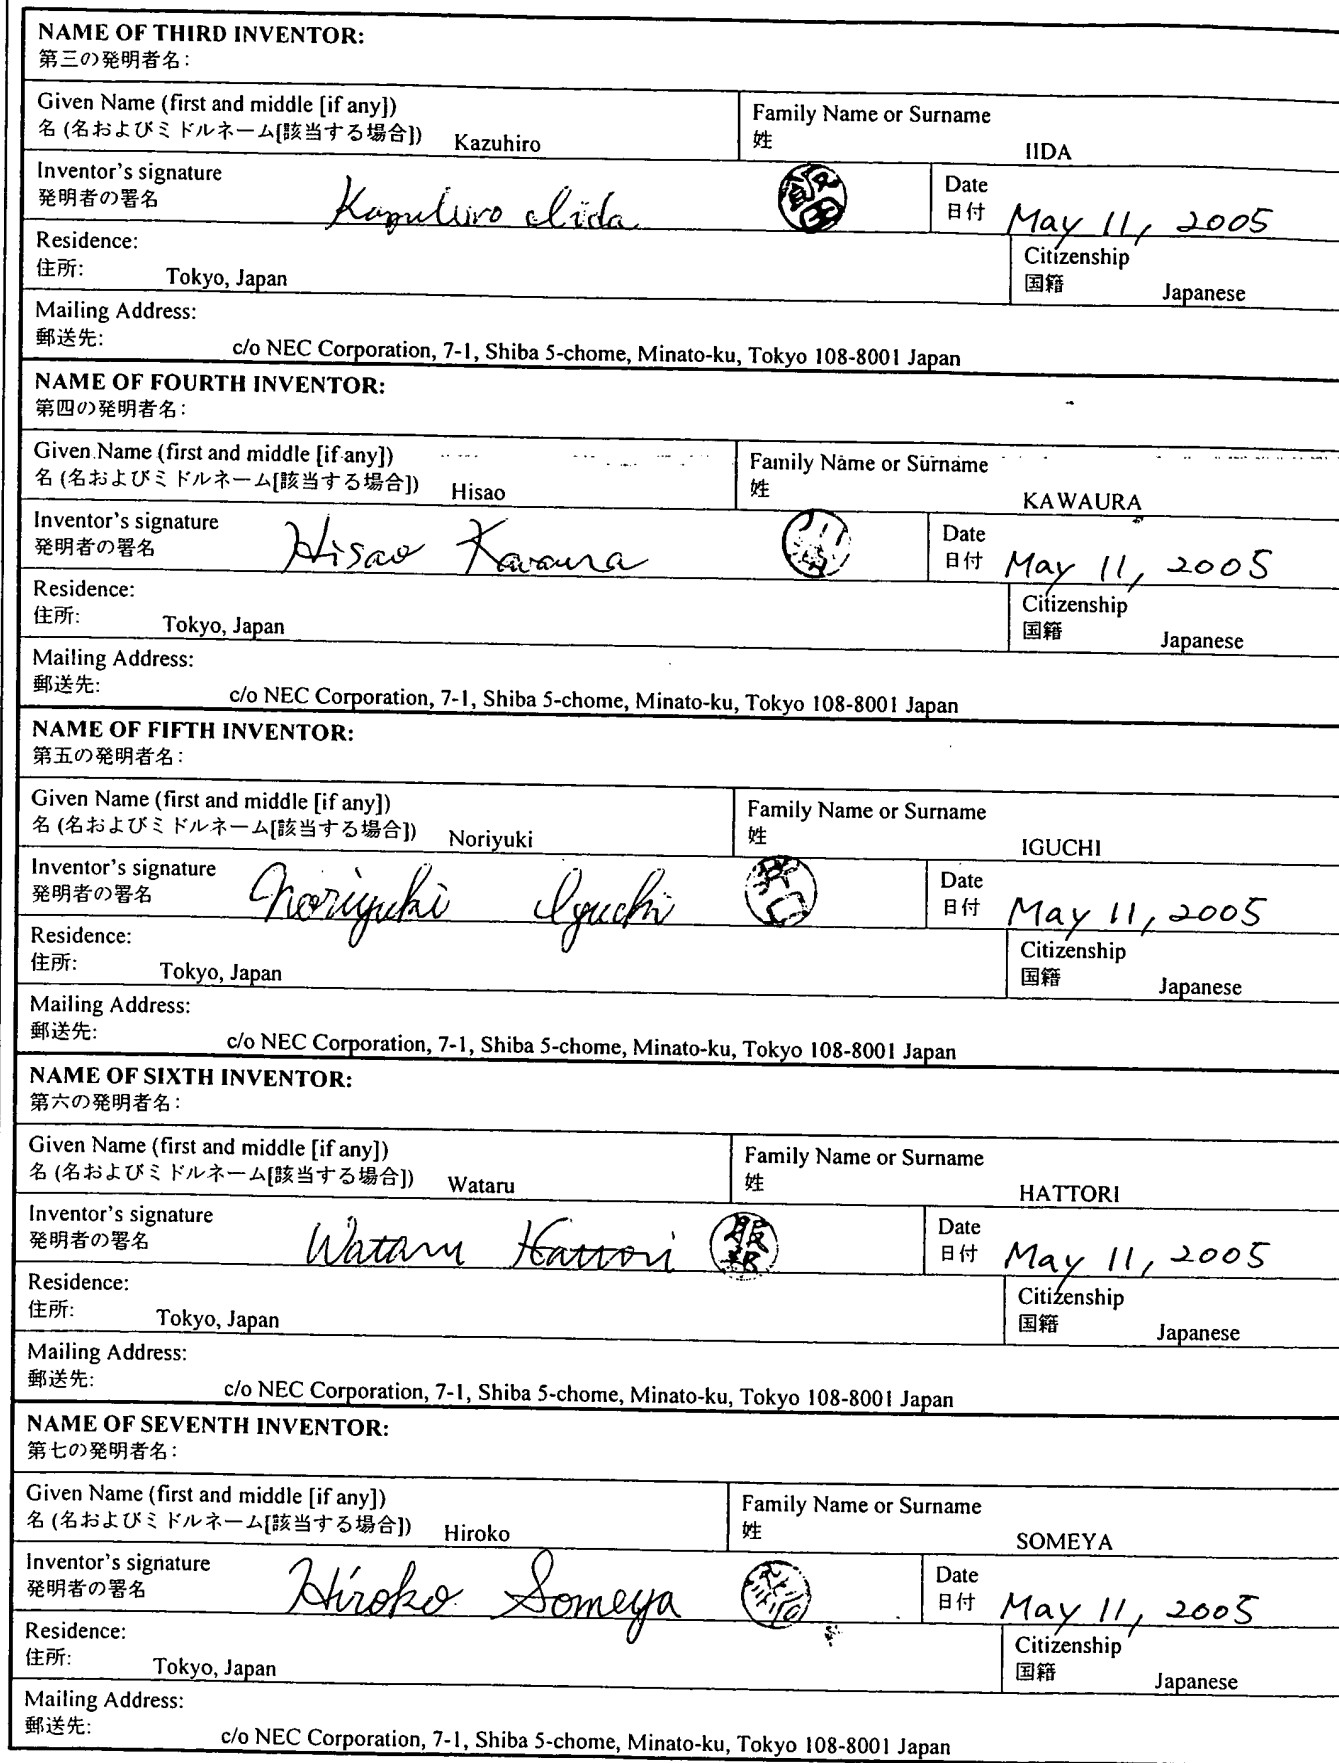 NAME OF THIRD INVENTOR:
第三の発明者名:
Given Name (first and middle [if any])
名 (名およびミドルネーム[該当する場合]) Kazuhiro
Family Name or Surname
姓 IIDA
Inventor's signature
発明者の署名 Kazuhiro Iida 飯田
Date
日付 May 11, 2005
Residence:
住所: Tokyo, Japan
Citizenship
国籍 Japanese
Mailing Address:
郵送先: c/o NEC Corporation, 7-1, Shiba 5-chome, Minato-ku, Tokyo 108-8001 Japan
NAME OF FOURTH INVENTOR:
第四の発明者名:
Given Name (first and middle [if any])
名 (名およびミドルネーム[該当する場合]) Hisao
Family Name or Surname
姓 KAWAURA
Inventor's signature
発明者の署名 Hisao Kawaura 川浦
Date
日付 May 11, 2005
Residence:
住所: Tokyo, Japan
Citizenship
国籍 Japanese
Mailing Address:
郵送先: c/o NEC Corporation, 7-1, Shiba 5-chome, Minato-ku, Tokyo 108-8001 Japan
NAME OF FIFTH INVENTOR:
第五の発明者名:
Given Name (first and middle [if any])
名 (名およびミドルネーム[該当する場合]) Noriyuki
Family Name or Surname
姓 IGUCHI
Inventor's signature
発明者の署名 Noriyuki Iguchi 井口
Date
日付 May 11, 2005
Residence:
住所: Tokyo, Japan
Citizenship
国籍 Japanese
Mailing Address:
郵送先: c/o NEC Corporation, 7-1, Shiba 5-chome, Minato-ku, Tokyo 108-8001 Japan
NAME OF SIXTH INVENTOR:
第六の発明者名:
Given Name (first and middle [if any])
名 (名およびミドルネーム[該当する場合]) Wataru
Family Name or Surname
姓 HATTORI
Inventor's signature
発明者の署名 Wataru Hattori 服部
Date
日付 May 11, 2005
Residence:
住所: Tokyo, Japan
Citizenship
国籍 Japanese
Mailing Address:
郵送先: c/o NEC Corporation, 7-1, Shiba 5-chome, Minato-ku, Tokyo 108-8001 Japan
NAME OF SEVENTH INVENTOR:
第七の発明者名:
Given Name (first and middle [if any])
名 (名およびミドルネーム[該当する場合]) Hiroko
Family Name or Surname
姓 SOMEYA
Inventor's signature
発明者の署名 Hiroko Someya
Date
日付 May 11, 2005
Residence:
住所: Tokyo, Japan
Citizenship
国籍 Japanese
Mailing Address:
郵送先: c/o NEC Corporation, 7-1, Shiba 5-chome, Minato-ku, Tokyo 108-8001 Japan